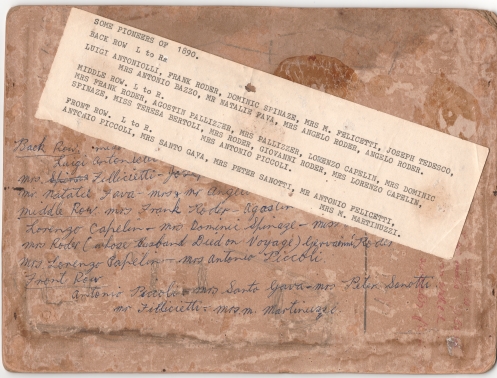 SOME PIONEERS OF 1890.
BACK ROW L to R:
LUIGI ANTONIOLLI, FRANK RODER, DOMINIC SPINAZE, MRS M. FELICETTI, JOSEPH TEDESCO,
MRS ANTONIO BAZZO, MR NATALIE FAVA, MRS ANGELO RODER, ANGELO RODER.
MIDDLE ROW. L to R.
MRS FRANK RODER, AGOSTIN PALLIZZER, MRS PALLIZZER, LORENZO CAPELIN, MRS DOMINIC
SPINAZE, MISS TERESA BERTOLI, MRS RODER, GIOVANNI RODER, MRS LORENZO CAPELIN,
MRS ANTONIO PICCOLI.
FRONT ROW. L to R.
ANTONIO PICCOLI, MRS SANTO GAVA, MRS PETER SANOTTI, MR ANTONIO FELICETTI,
MRS M. MARTINUZZI.
Back Row
Luigi
mrs Fillicietti
mr Natalie Fava - mrs & mr Angelo
middle Row. mrs Frank Roder Agostin
Lorinzo Capelin - mrs Dominic Spinaze - miss
mrs Roder (whose Husband Died on Voyage) Giovanni Roder
mrs Lorenzo Capelon - mrs Antonio Piccoli
Front Row
Antonio Piccoli - mrs Santo Gava - mrs Peter Sanotti
mr Fillicietti - mrs m. Martinuzzi